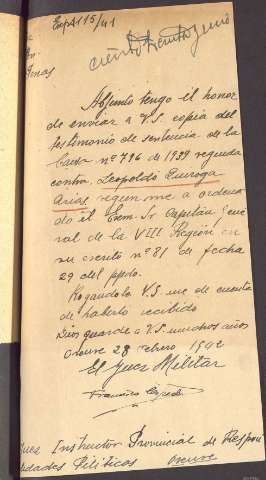 Exp 4115/41
ciento treinta y cinco
Adjunto tengo el honor
de enviar a V.S. copia del
testimonio de sentencia de la
Causa nº 796 de 1939 seguida
contra Leopoldo Quiroga
Arias segun me a ordena
do el Exm. Sr Capitan Gene
ral de la VIII Región en
su escrito nº 81 de fecha
29 del ppdo.
Rogandole V.S. me de cuenta
de haberlo recibido
Dios guarde a V.S. muchos años
Orense 28 Febrero 1942
El Juez Militar
Francisco
Juez Instructor Provincial de Respon
idades Políticas Orense